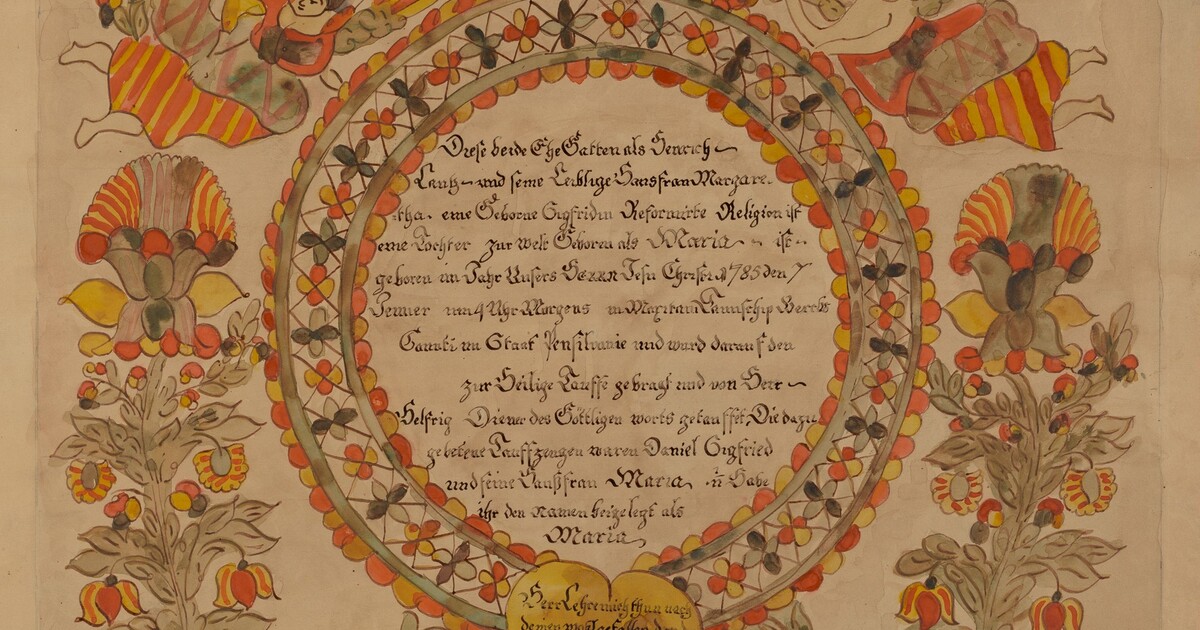 Diese beide Ehe Gatten als Henrich
Lautz und seine Leiblige Hausfrau Margare-
tha eine Geborne Sigfridin Reformirte Religion ist
eine Tochter zur Welt Geboren als Maria ist
geboren im Jahr Unsers HERRN Jesu Christi A 1785 den 7
Jenner um 4 Uhr Morgens in Taunschip Berks
Caunti im Staat Pensilvanie und ward darauf den
zur Heilige Tauffe gebracht und von Herr
Helfrig Diener des Göttligen worts getauffet, Die dazu
gebetene Tauffzeugen waren Daniel Sigfried
und seine Haußfrau Maria u Habe
ihr den Namen beigelegt als
Maria
Herr Lehre mich thun nach
deinen wohlgefallen den